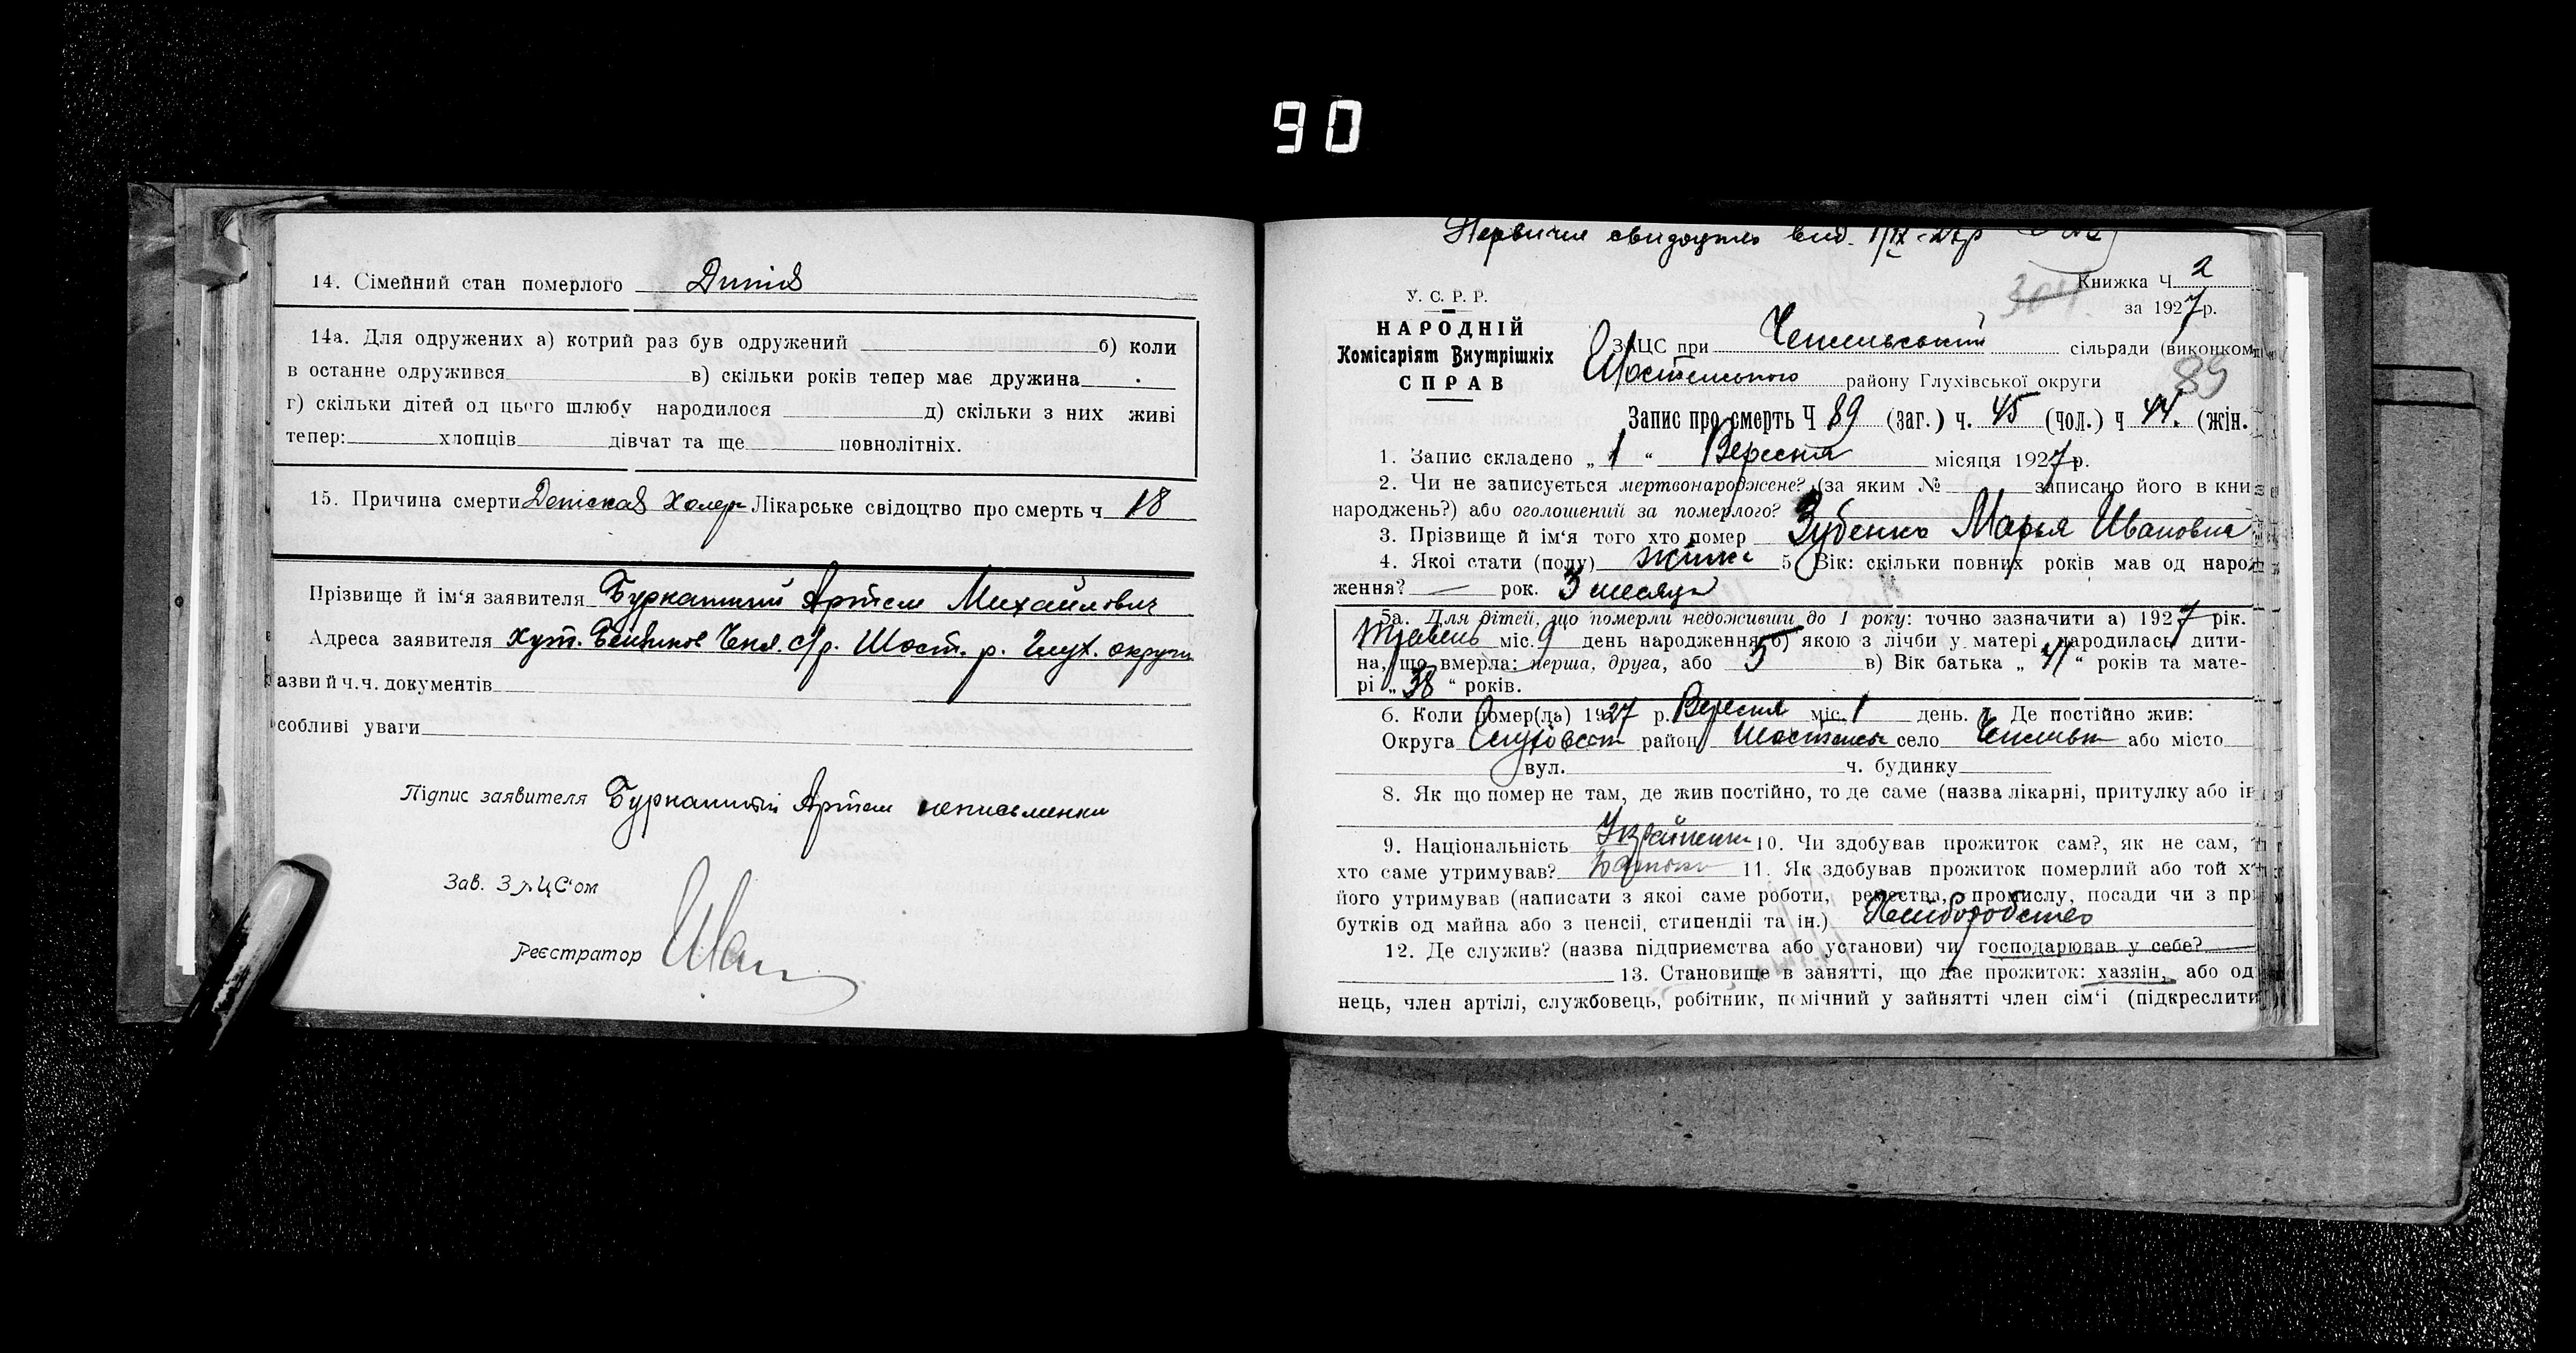 90
14. Сімейний стан померлого
14а. Для одружених а) котрий раз був одружений б) коли
в останне одружився в) скільки років тепер має дружина
г) скільки дітей од цього шлюбу народилося д) скільки з них живі
тепер: хлопців дівчат та ще повнолітніх.
15. Причина смерти Лікарське свідоцтво про смерть ч 18
Прізвище й ім‘я заявителя Артем Михайлович
Адреса заявителя Хут. с/р. Шост. р. Глух. округи
азви й ч.ч. документів
собливі уваги
Підпис заявителя Артем неписьменни
Зав. ЗАЦС‘ом
Реєстратор
Первичне свидоцтво вид.
Книжка Ч. 2
304
У. С. Р. Р.
за 1927 р.
НАРОДНІЙ
Комісаріят Внутрішніх
СПРАВ
ЗАЦС при сільради (виконком
району Глухівської округи
89
Запис про смерть Ч 89 (заг.) ч. 45 (чол.) ч 44. (жін.
1. Запис складено „ 1 “ Вересня місяця 1927 р.
2. Чи не записується мертвонароджене? (за яким № записано його в кни
народжень?) або оголошений за померлого?
3. Прізвище й ім‘я того хто помер Зубенко Марья Ивановна
4. Якої стати (полу) жінка 5. Вік: скільки повних років мав од народ
ження? — рок. 3 месяця
5а. Для дітей, що померли недоживши до 1 року: точно зазначити а) 1927 рік.
Травень міс. 9 день народження б) якою з лічби у матері народилась дити-
на, що вмерла: перша, друга, або 5 в) Вік батька „ 41 “ років та мате-
рі „ 38 “ років.
6. Коли помер(ла) 1927 р. Вересня міс. 1 день. 7. Де постійно жив:
Округа район село або місто
вул. ч. будинку
8. Як що помер не там, де жив постійно, то де саме (назва лікарні, притулку або ін
9. Національність Українка 10. Чи здобував прожиток сам?, як не сам,
хто саме утримував? 11. Як здобував прожиток померлий або той х
його утримував (написати з якої саме роботи, ремества, промислу, посади чи з при
бутків од майна або з пенсії, стипендії та ін.)
12. Де служив? (назва підприємства або установи) чи господарював у себе?
13. Становище в занятті, що дає прожиток: хазяїн, або од
нець, член артілі, службовець, робітник, помічний у зайнятті член сім‘ї (підкреслити